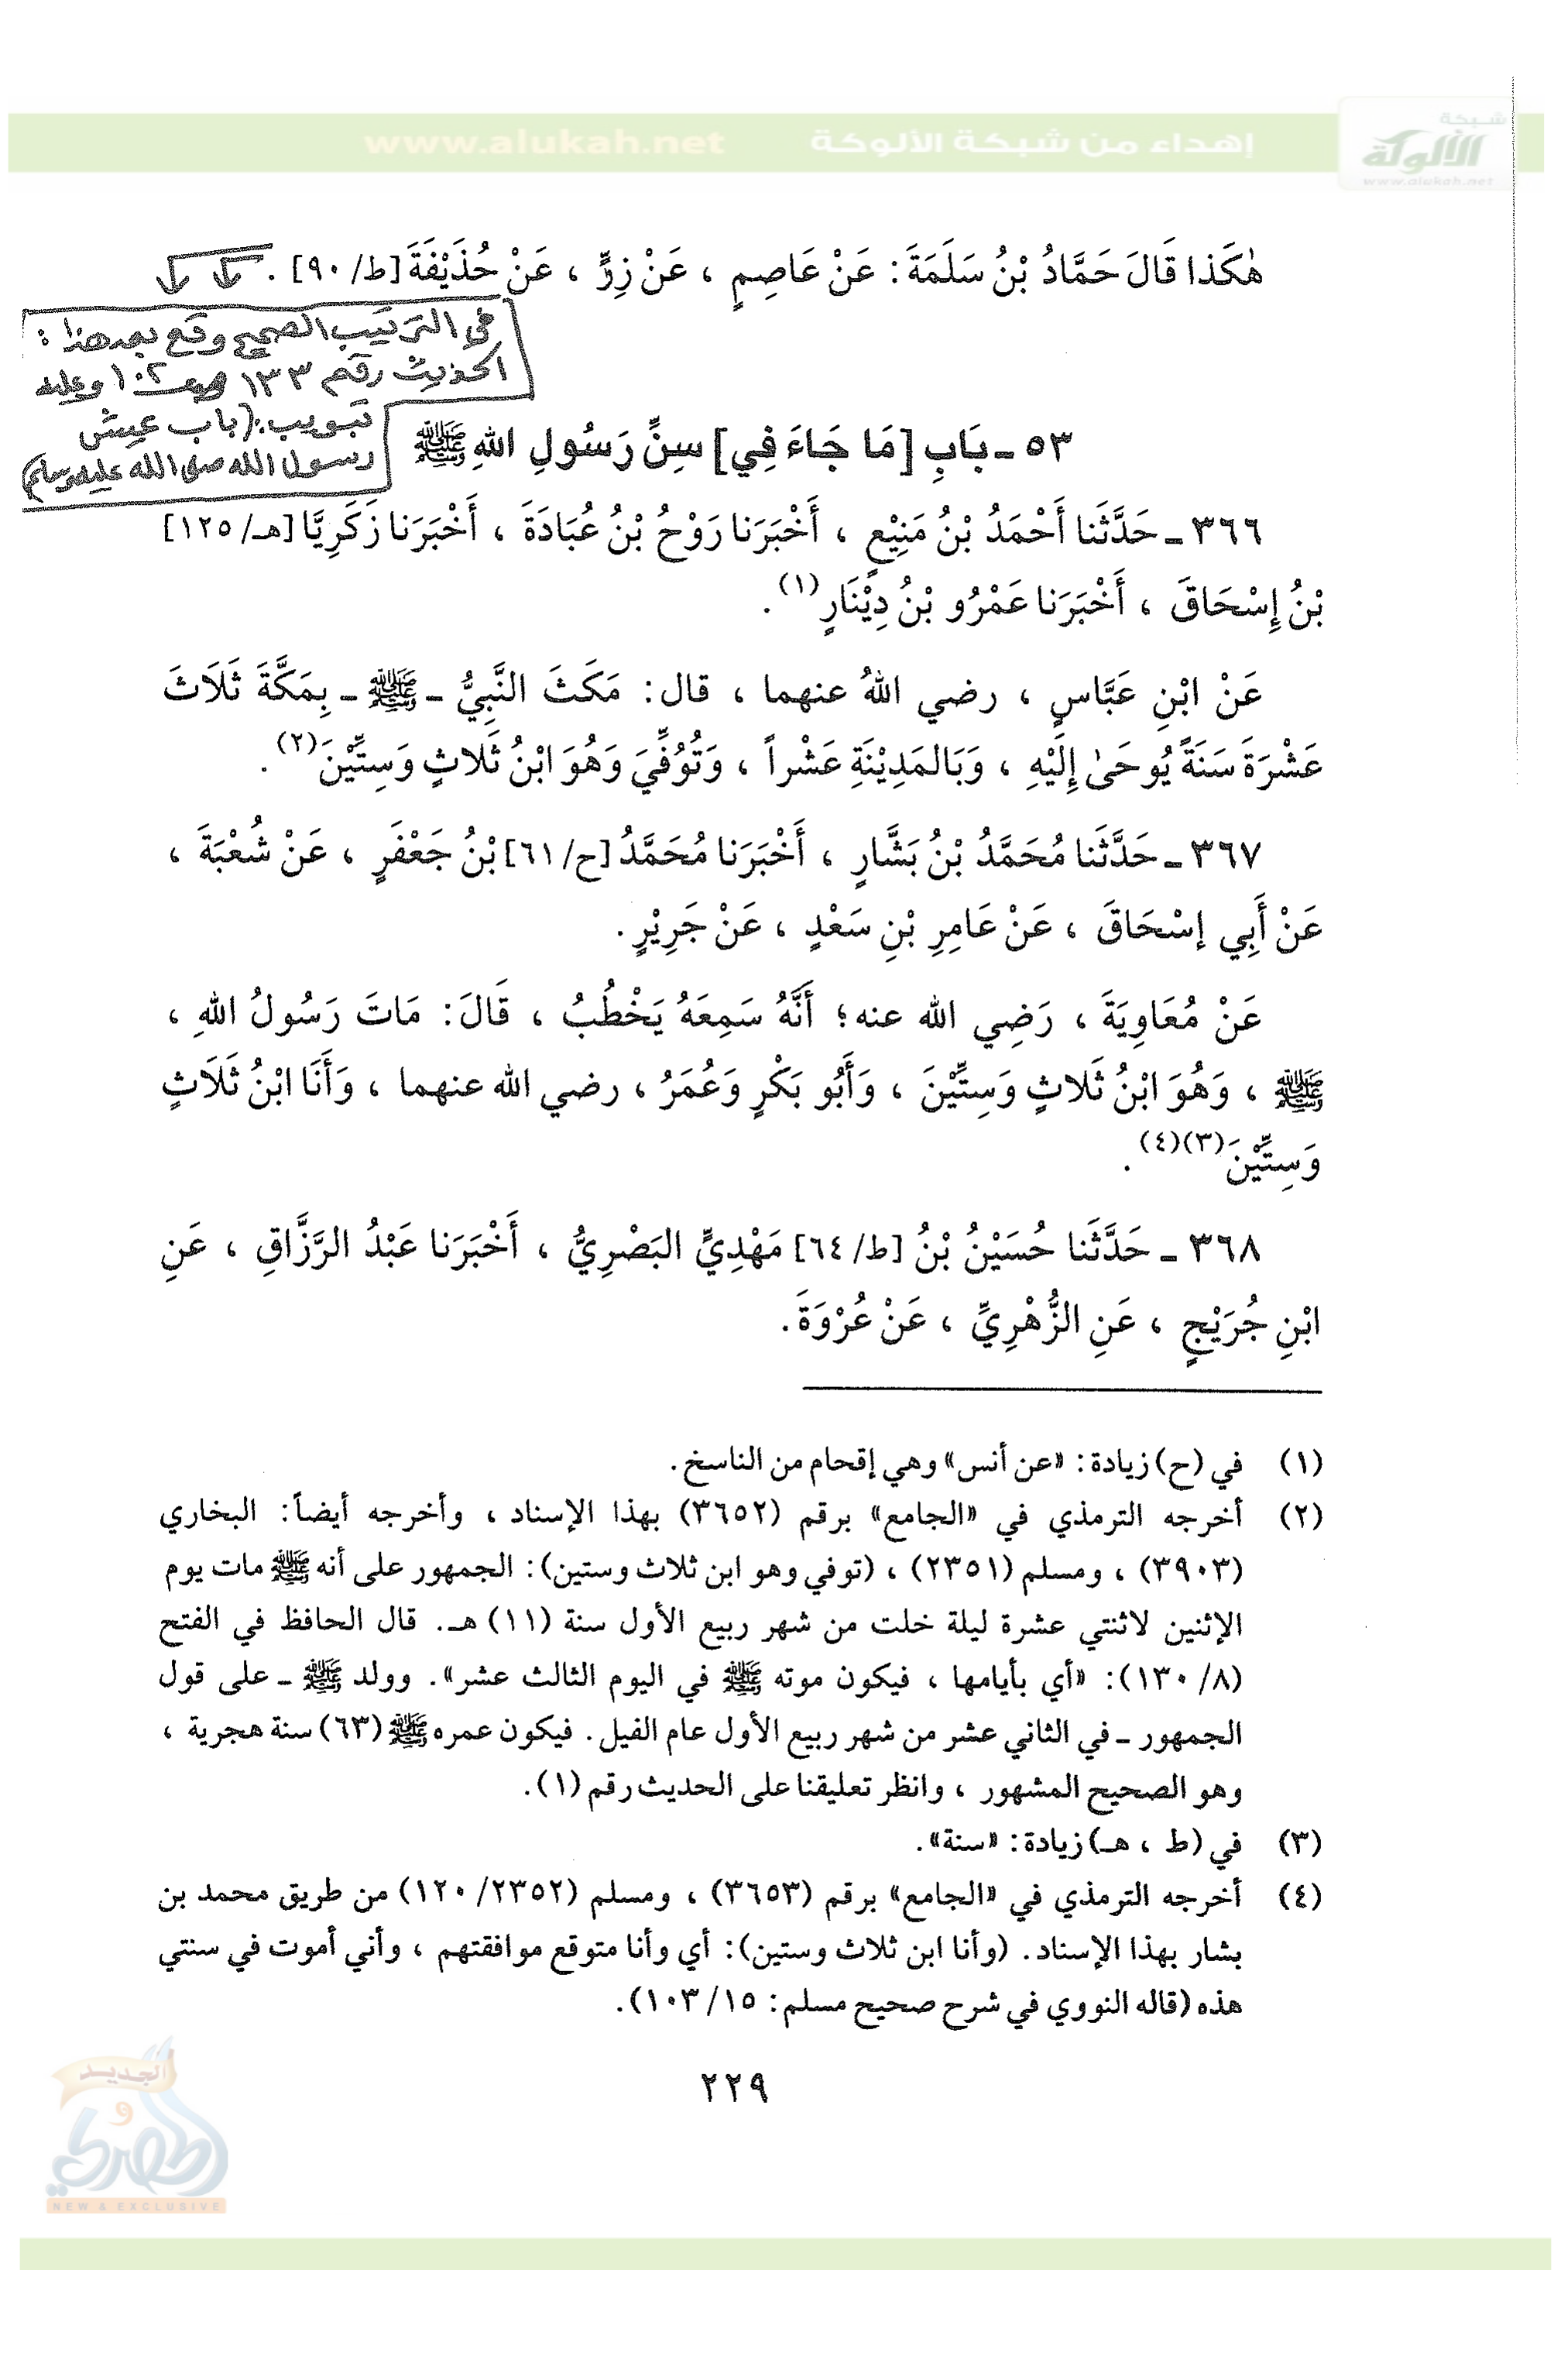 شبكة
الألوكة
www.alukah.net
إهداء من شبكة الألوكة www.alukah.net
هٰكَذا قَالَ حَمَّادُ بْنُ سَلَمَةَ: عَنْ عَاصِمٍ ، عَنْ زِرٍّ ، عَنْ حُذَيْفَةَ [ط/ ٩٠] .
في الترتيب الصحيح وقع بعد هذا :
الحديث رقم ١٣٣ ١٠٢ وعليه
تبويب: (باب عيش
رسول الله صلى الله عليه وسلم)
٥٣ ـ بَابِ [مَا جَاءَ فِي] سِنِّ رَسُولِ اللهِ ﷺ
٣٦٦ ـ حَدَّثَنا أَحْمَدُ بْنُ مَنِيْعٍ ، أَخْبَرَنا رَوْحُ بْنُ عُبَادَةَ ، أَخْبَرَنا زَكَرِيَّا [هـ/ ١٢٥]
بْنُ إِسْحَاقَ ، أَخْبَرَنا عَمْرُو بْنُ دِيْنَارٍ(١) .
عَنْ ابْنِ عَبَّاسٍ ، رضي اللهُ عنهما ، قال: مَكَثَ النَّبِيُّ ـ ﷺ ـ بِمَكَّةَ ثَلَاثَ
عَشْرَةَ سَنَةً يُوحَىٰ إِلَيْهِ ، وَبَالمَدِيْنَةِ عَشْراً ، وَتُوُفِّيَ وَهُوَ ابْنُ ثَلاثٍ وَسِتِّيْنَ(٢) .
٣٦٧ ـ حَدَّثَنا مُحَمَّدُ بْنُ بَشَّارٍ ، أَخْبَرَنا مُحَمَّدُ [ح/ ٦١] بْنُ جَعْفَرٍ ، عَنْ شُعْبَةَ ،
عَنْ أَبِي إسْحَاقَ ، عَنْ عَامِرِ بْنِ سَعْدٍ ، عَنْ جَرِيْرٍ .
عَنْ مُعَاوِيَةَ ، رَضِي الله عنه؛ أَنَّهُ سَمِعَهُ يَخْطُبُ ، قَالَ: مَاتَ رَسُولُ اللهِ ،
ﷺ ، وَهُوَ ابْنُ ثَلاثٍ وَسِتِّيْنَ ، وَأَبُو بَكْرٍ وَعُمَرُ ، رضي الله عنهما ، وَأَنَا ابْنُ ثَلَاثٍ
وَسِتِّيْنَ(٣)(٤) .
٣٦٨ ـ حَدَّثَنا حُسَيْنُ بْنُ [ط/ ٦٤] مَهْدِيٍّ البَصْرِيُّ ، أَخْبَرَنا عَبْدُ الرَّزَّاقِ ، عَنِ
ابْنِ جُرَيْجٍ ، عَنِ الزُّهْرِيِّ ، عَنْ عُرْوَةَ .
(١) في (ح) زيادة: «عن أنس» وهي إقحام من الناسخ .
(٢) أخرجه الترمذي في «الجامع» برقم (٣٦٥٢) بهذا الإسناد ، وأخرجه أيضاً: البخاري
(٣٩٠٣) ، ومسلم (٢٣٥١) ، (توفي وهو ابن ثلاث وستين): الجمهور على أنه ﷺ مات يوم
الإثنين لاثنتي عشرة ليلة خلت من شهر ربيع الأول سنة (١١) هـ. قال الحافظ في الفتح
(٨/ ١٣٠): «أي بأيامها ، فيكون موته ﷺ في اليوم الثالث عشر». وولد ﷺ ـ على قول
الجمهور ـ في الثاني عشر من شهر ربيع الأول عام الفيل. فيكون عمره ﷺ (٦٣) سنة هجرية ،
وهو الصحيح المشهور ، وانظر تعليقنا على الحديث رقم (١).
(٣) في (ط ، هـ) زيادة: «سنة».
(٤) أخرجه الترمذي في «الجامع» برقم (٣٦٥٣) ، ومسلم (٢٣٥٢/ ١٢٠) من طريق محمد بن
بشار بهذا الإسناد. (وأنا ابن ثلاث وستين): أي وأنا متوقع موافقتهم ، وأني أموت في سنتي
هذه (قاله النووي في شرح صحيح مسلم: ١٥/ ١٠٣).
٢٢٩
الجديد
و
الحصري
NEW & EXCLUSIVE